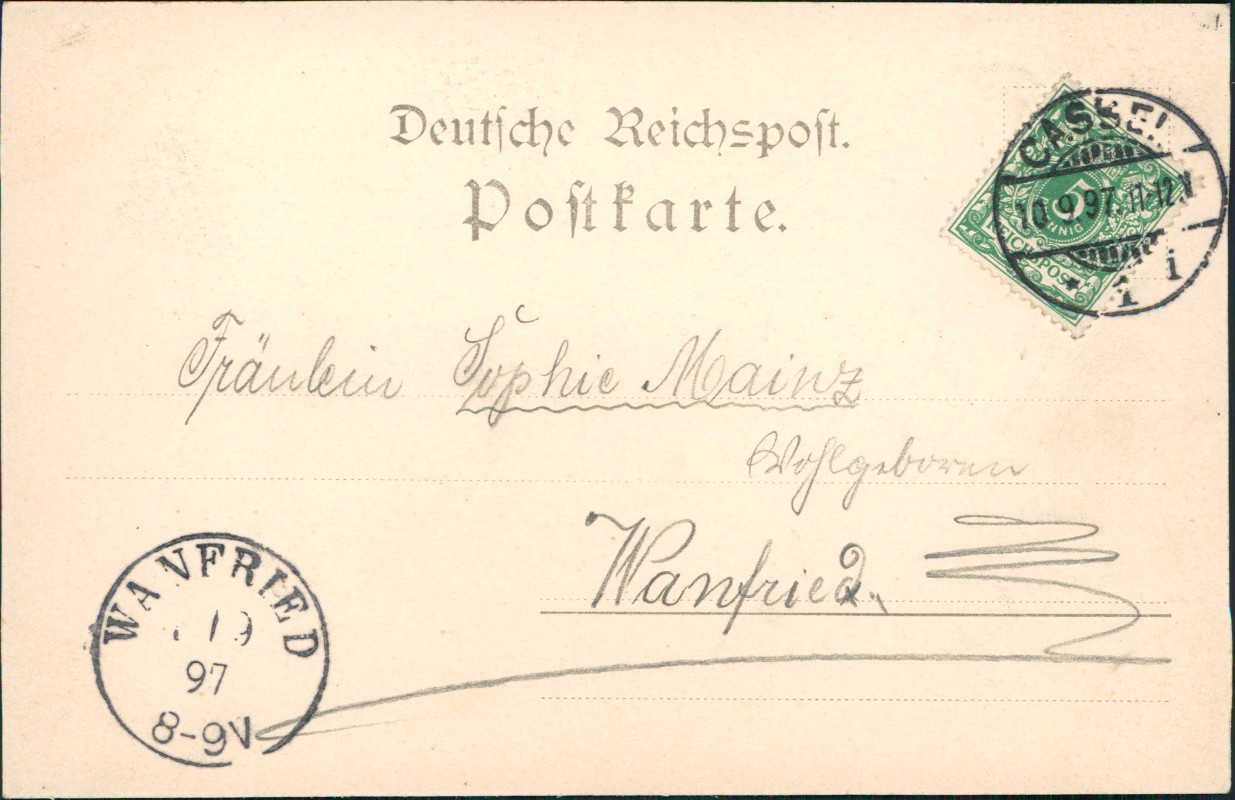 Deutsche Reichspost.
Postkarte.
CASSEL
10.9.97. 11-12V
* 1 i
5
REICHSPOST
Fräulein Sophie Mainz
Wohlgeboren
Wanfried.
WANFRIED
97
8-9V